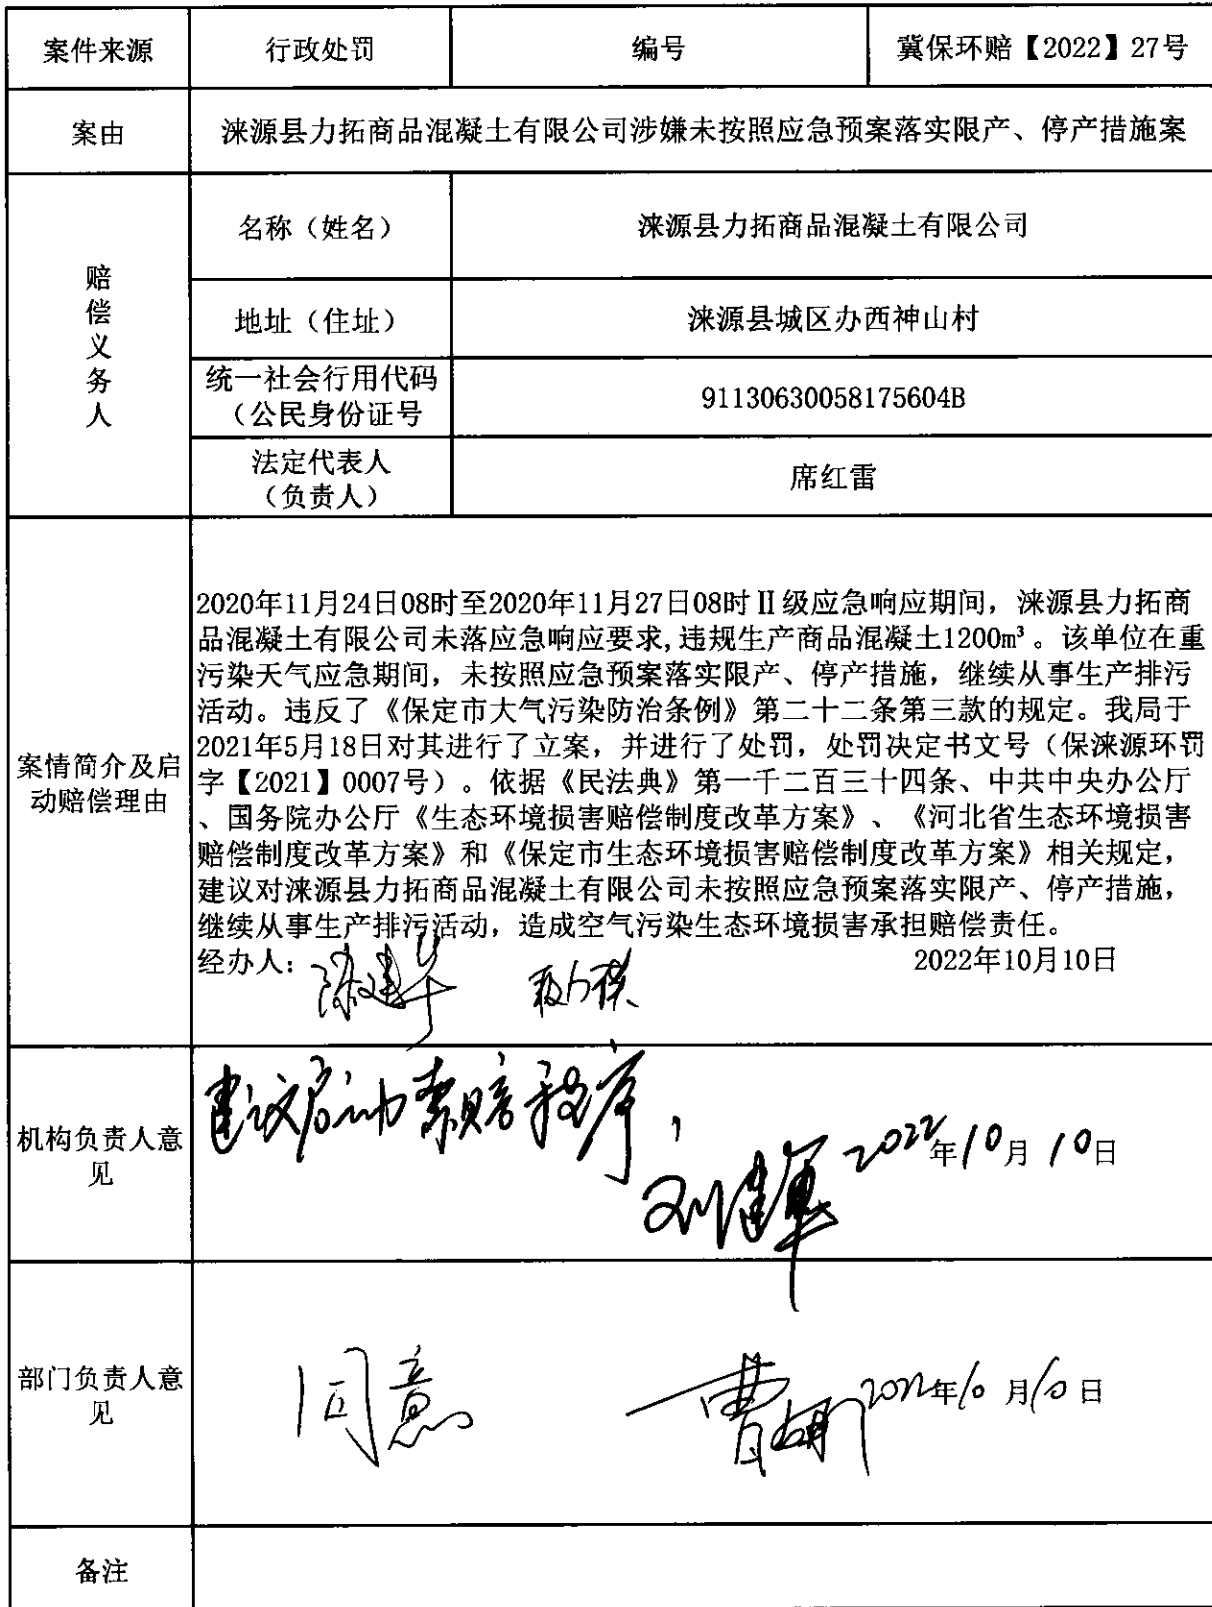 案件来源 行政处罚 编号 冀保环赔【2022】27号
案由 涞源县力拓商品混凝土有限公司涉嫌未按照应急预案落实限产、停产措施案
赔偿义务人
名称（姓名） 涞源县力拓商品混凝土有限公司
地址（住址） 涞源县城区办西神山村
统一社会行用代码
（公民身份证号
91130630058175604B
法定代表人
（负责人）
席红雷
案情简介及启
动赔偿理由
2020年11月24日08时至2020年11月27日08时Ⅱ级应急响应期间，涞源县力拓商
品混凝土有限公司未落应急响应要求,违规生产商品混凝土1200m³。该单位在重
污染天气应急期间，未按照应急预案落实限产、停产措施，继续从事生产排污
活动。违反了《保定市大气污染防治条例》第二十二条第三款的规定。我局于
2021年5月18日对其进行了立案，并进行了处罚，处罚决定书文号（保涞源环罚
字【2021】0007号）。依据《民法典》第一千二百三十四条、中共中央办公厅
、国务院办公厅《生态环境损害赔偿制度改革方案》、《河北省生态环境损害
赔偿制度改革方案》和《保定市生态环境损害赔偿制度改革方案》相关规定，
建议对涞源县力拓商品混凝土有限公司未按照应急预案落实限产、停产措施，
继续从事生产排污活动，造成空气污染生态环境损害承担赔偿责任。
经办人： 2022年10月10日
机构负责人意
见
建议启动索赔程序，
2022年10月10日
部门负责人意
见
同意 2022年10月10日
备注